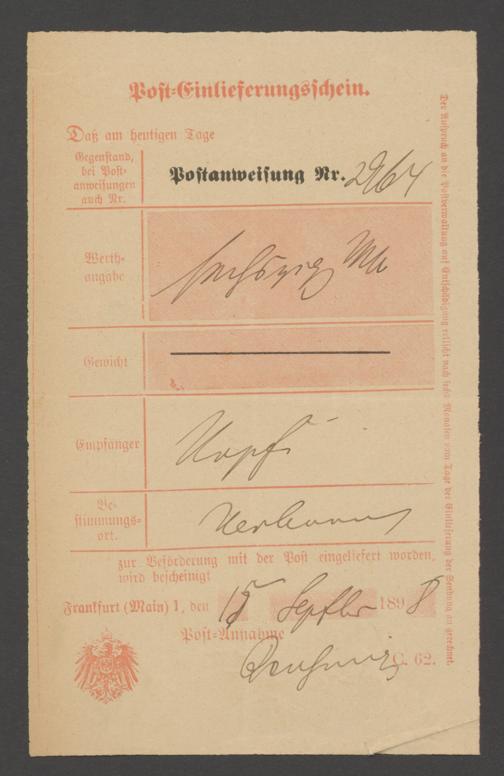 Post-Einlieferungsschein.
Daß am heutigen Tage
Gegenstand,
bei Post-
anweisungen
auch Nr.
Postanweisung Nr. 2964
Werth-
angabe
sechszig Mk
Gewicht
Empfänger
Be-
stimmungs-
ort.
zur Beförderung mit der Post eingeliefert worden,
wird bescheinigt
Frankfurt (Main) 1, den 15 Septbr 1898
Post-Annahme
C. 62.
Der Anspruch an die Postverwaltung auf Entschädigung erlischt nach sechs Monaten vom Tage der Einlieferung der Sendung an gerechnet.